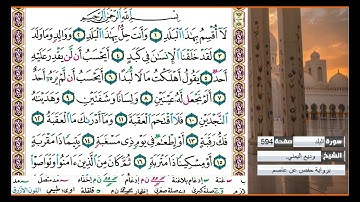 بِسْمِ اللَّهِ الرَّحْمَٰنِ الرَّحِيمِ
لَا أُقْسِمُ بِهَٰذَا الْبَلَدِ ١ وَأَنتَ حِلٌّ بِهَٰذَا الْبَلَدِ ٢ وَوَالِدٍ وَمَا وَلَدَ
٣ لَقَدْ خَلَقْنَا الْإِنسَٰنَ فِي كَبَدٍ ٤ أَيَحْسَبُ أَن لَّن يَقْدِرَ عَلَيْهِ
أَحَدٌ ٥ يَقُولُ أَهْلَكْتُ مَالًا لُّبَدًا ٦ أَيَحْسَبُ أَن لَّمْ يَرَهُۥ أَحَدٌ
٧ أَلَمْ نَجْعَل لَّهُۥ عَيْنَيْنِ ٨ وَلِسَانًا وَشَفَتَيْنِ ٩ وَهَدَيْنَٰهُ
النَّجْدَيْنِ ١٠ فَلَا اقْتَحَمَ الْعَقَبَةَ ١١ وَمَا أَدْرَىٰكَ مَا الْعَقَبَةُ ١٢
فَكُّ رَقَبَةٍ ١٣ أَوْ إِطْعَٰمٌ فِي يَوْمٍ ذِي مَسْغَبَةٍ ١٤ يَتِيمًا ذَا مَقْرَبَةٍ
١٥ أَوْ مِسْكِينًا ذَا مَتْرَبَةٍ ١٦ ثُمَّ كَانَ مِنَ الَّذِينَ ءَامَنُوا وَتَوَاصَوْا
سورة البلد صفحة 594
الشيخ وديع اليمني
برواية حفص عن عاصم